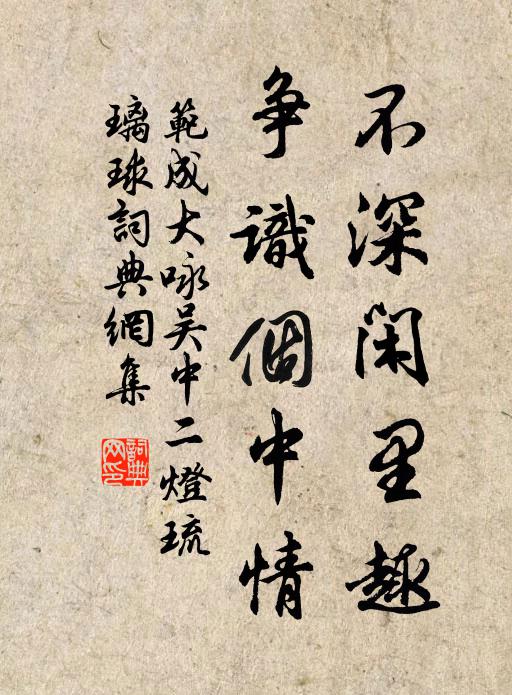 不深閑里趣
争識個中情
範成大咏吴中二燈琉
璃球詞典網集
詞典网印